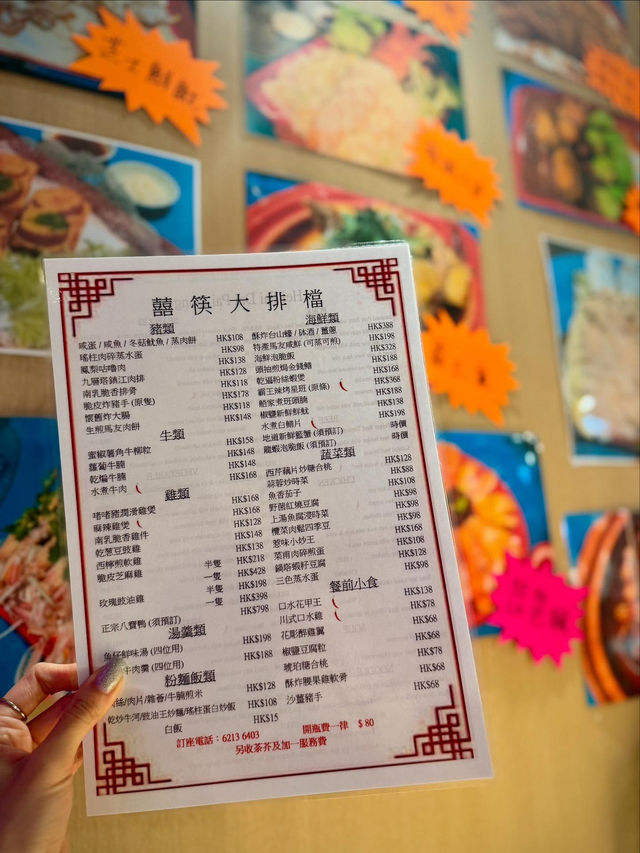 囍筷大排檔
豬類
咸蛋 / 咸魚 / 冬菇魷魚 / 蒸肉餅 HK$108
瑤柱肉碎蒸水蛋 HK$98
鳳梨咕嚕肉 HK$138
九層塔鎮江肉排 HK$128
南乳脆香排骨 HK$118
脆皮炸豬手 (原隻) HK$178
懷舊炸大腸 HK$118
生煎馬友肉餅 HK$148
牛類
蜜椒薯角牛柳粒 HK$158
蘿蔔牛腩 HK$148
乾煸牛腩 HK$148
水煮牛肉 HK$168
雞類
啫啫豬潤滑雞煲 HK$168
麻辣雞煲 HK$168
南乳脆香雞件 HK$128
乾葱豆豉雞 HK$148
西檸煎軟雞 HK$138
脆皮芝麻雞 半隻 HK$218
一隻 HK$428
玫瑰豉油雞 半隻 HK$198
一隻 HK$398
正宗八寶鴨 (須預訂) HK$798
湯羹類
魚仔鮮味湯 (四位用) HK$198
牛肉羹 (四位用) HK$188
粉麵飯類
絲/肉片/雜薈/牛腩煎米 HK$128
乾炒牛河/豉油王炒麵/瑤柱蛋白炒飯 HK$108
白飯 HK$15
海鮮類
酥炸台山蠔 / 砵酒 / 薑葱 HK$388
特產馬友咸鮮 (可蒸可煎) HK$198
海鮮泡脆飯 HK$328
頭抽煎焗金錢鱔 HK$188
乾逼粉絲蝦煲 HK$168
霸王辣烤星班 (原條) HK$368
船家煮斑頭腩 HK$188
椒鹽新鮮鮮魷 HK$138
水煮白鱔片 HK$198
地道新鮮籃蟹 (須預訂) 時價
龍蝦泡脆飯 (須預訂) 時價
蔬菜類
西芹藕片炒糖合桃 HK$128
蒜蓉炒時菜 HK$88
魚香茄子 HK$108
野菌紅燒豆腐 HK$98
上湯魚腐浸時菜 HK$98
欖菜肉鬆四季豆 HK$98
惹味小炒王 HK$168
菜甫肉碎煎蛋 HK$108
鍋塔蝦籽豆腐 HK$128
三色蒸水蛋 HK$98
餐前小食
口水花甲王 HK$138
川式口水雞 HK$78
花彫醉雞翼 HK$68
椒鹽豆腐粒 HK$68
琥珀糖合桃 HK$78
酥炸腰果雞軟骨 HK$68
沙薑豬手 HK$68
訂座電話：6213 6403 開瓶費一律 $ 80
另收茶芥及加一服務費